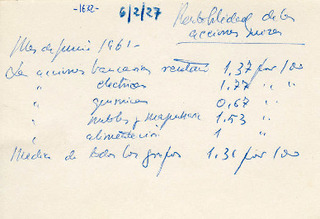 -1622-
6/2/27
Rentabilidad de las
acciones
Mes de junio 1961-
Las acciones bancarias rentan 1,37 por 100
" electricas 1,77 " "
" quimicas 0,67 " "
" 1,53 "
" alimentación 1 "
Media de todos los grupos 1,31 por 100